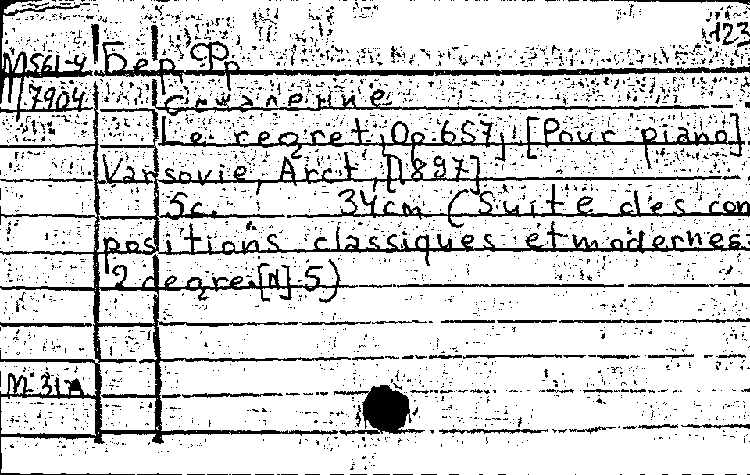 123
М 561-4 Бер, Фр.
7904 Сожаление
Le regret, Op. 657, [Pour piano]
Varsovie, Arct, [1897]
5c. 34cm (Suite des com
positions classiques et modernes
2 degre. [N] 5)
М-31А